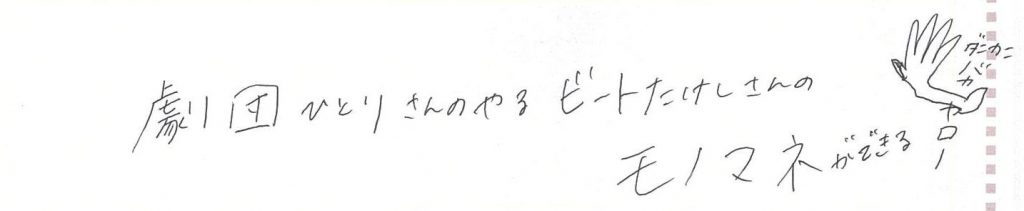 劇団ひとりさんのやるビートたけしさんの
モノマネができる
ダンカン
バカ
ヤロー